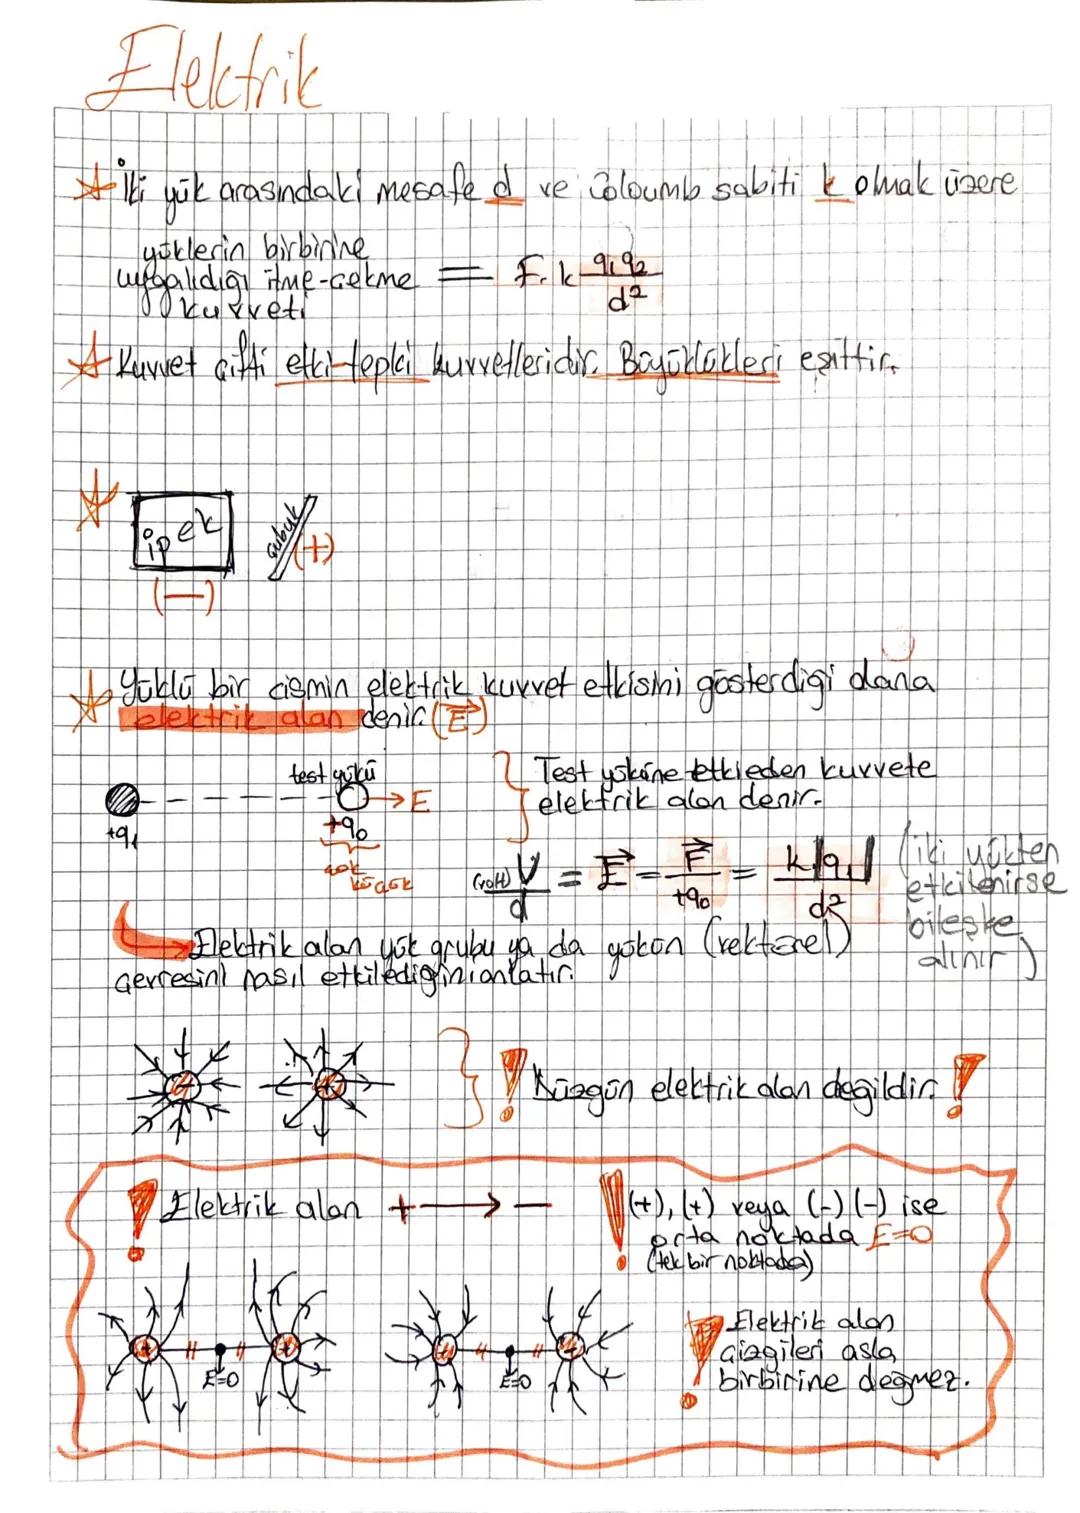 Elektrik
İki yük arasındaki mesafe d ve Coloumb sabiti k olmak üzere
yüklerin birbirine
uyguladığı itme-çekme = F. k q1q2
kuvveti d²
Kuvvet çifti etki-tepki kuvvetleridir. Büyüklükleri eşittir.
ipek çubuk (+)
(—)
Yüklü bir cismin elektrik kuvvet etkisini gösterdiği alana
elektrik alan denir. (E)
test yükü
E
+q1 +q0
çok
küçük
Test yüküne etkieden kuvvete
elektrik alan denir.
(volt) V / d = E = F / +q0 = k.|q1| / d²
(iki yükten
etkilenirse
bileşke
alınır)
Elektrik alan yük grubu ya da yükün (vektörel)
çevresini nasıl etkilediğini anlatır.
! Düzgün elektrik alan değildir. !
! Elektrik alan + → −
! (+), (+) veya (-) (-) ise
orta noktada E=0
(tek bir noktada)
E=0 E=0
! Elektrik alan
çizgileri asla
birbirine değmez.